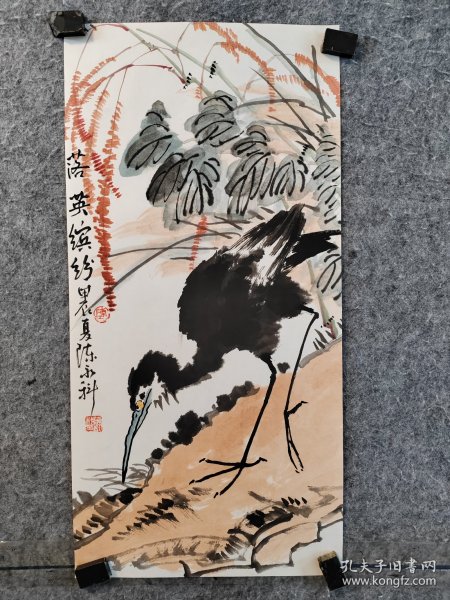 落英缤纷
甲辰夏陈永科
孔夫子旧书网
www.kongfz.com